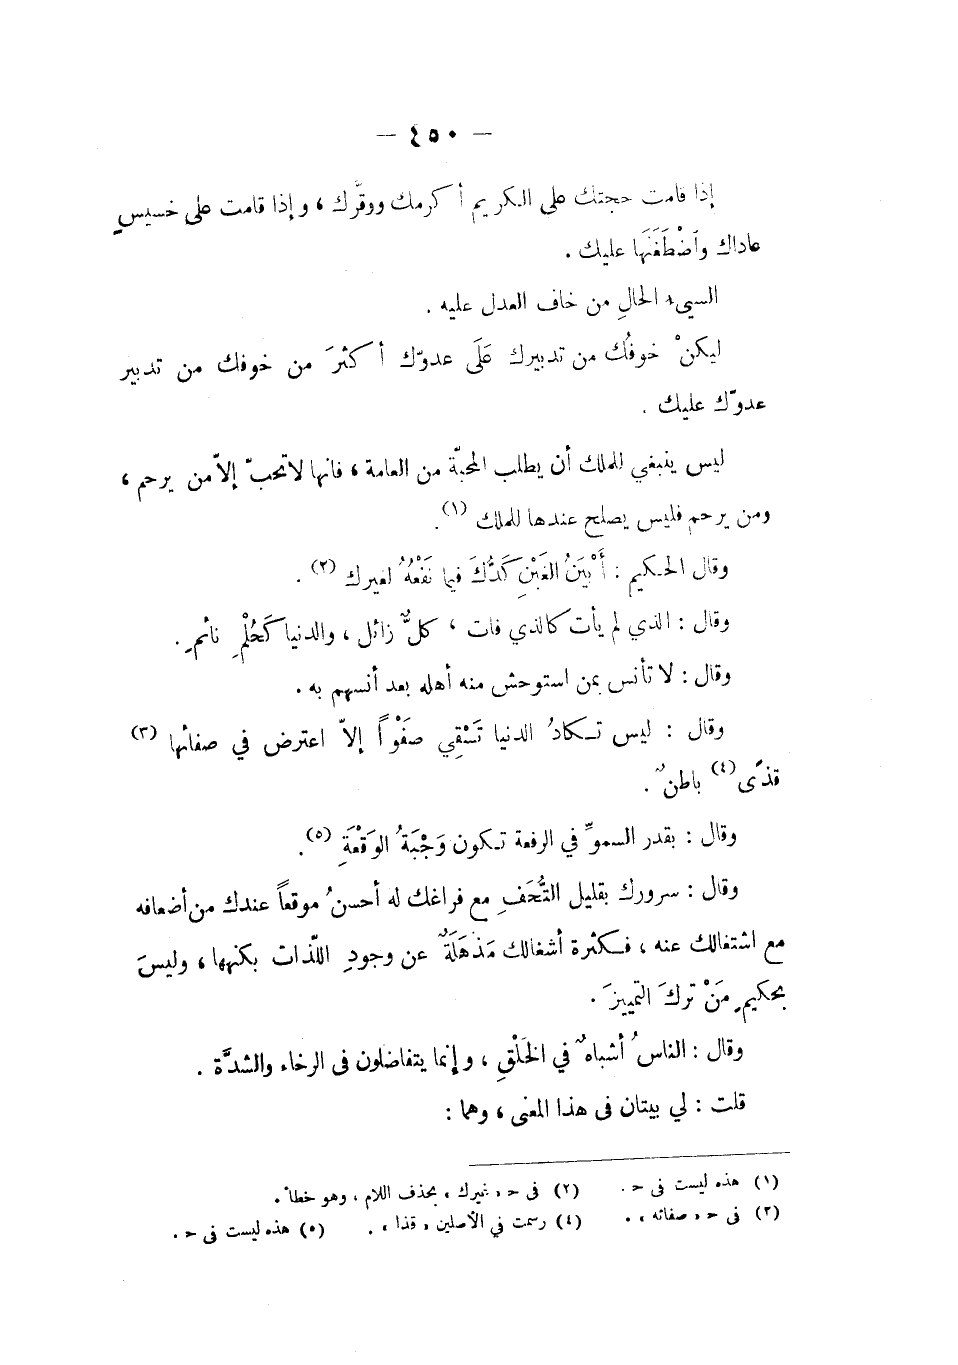 — ٤٥٠ —
إذا قامت حجتك على الكريم أكرمك ووقَّرك ، وإذا قامت على خسيسٍ
عاداك واَضْطَغَنَها عليك .
السيىء الحالِ من خاف العدل عليه .
ليكنْ خوفُك من تدبيرك عَلَى عدوّك أكثرَ من خوفك من تدبير
عدوّك عليك .
ليس ينبغي للملك أن يطلب المحبّة من العامة ، فانها لا تحبّ إلاّ من يرحم ،
ومن يرحم فليس يصلح عندها للملك (١).
وقال الحكيم : أَبْيَنُ الغَبْنِ كَدُّكَ فيما نَفْعُهُ لغيرك (٢) .
وقال : الذي لم يأت كالذي فات ، كلٌّ زائل ، والدنيا كَحُلْمِ نائمٍ .
وقال : لا تأنس بمن استوحش منه أهله بعد أنسهم به .
وقال : ليس تكادُ الدنيا تَسْقِي صَفْواً إلاّ اعترض في صفائها (٣)
قذًى (٤) باطنٌ .
وقال : بقدر السموِّ في الرفعة تكون وَجْبَةُ الوَقْعَةِ (٥).
وقال : سرورك بقليل التُّحَفِ مع فراغك له أحسنُ موقعاً عندك من أضعافه
مع اشتغالك عنه ، فكثرة أشغالك مَذْهَلَةٌ عن وجودِ اللّذات بكنهها ، وليسَ
بحكيمٍ مَنْ تركَ التمييزَ .
وقال : الناسُ أشباهٌ في الخَلْقِ ، وإنما يتفاضلون فى الرخاء والشدَّة .
قلت : لي بيتان فى هذا المعنى ، وهما :
(١) هذه ليست فى حـ . (٢) فى حـ « غيرك » بحذف اللام ، وهو خطأ .
(٣) فى حـ « صفائه » . (٤) رسمت في الأصلين « قذا » . (٥) هذه ليست فى حـ .